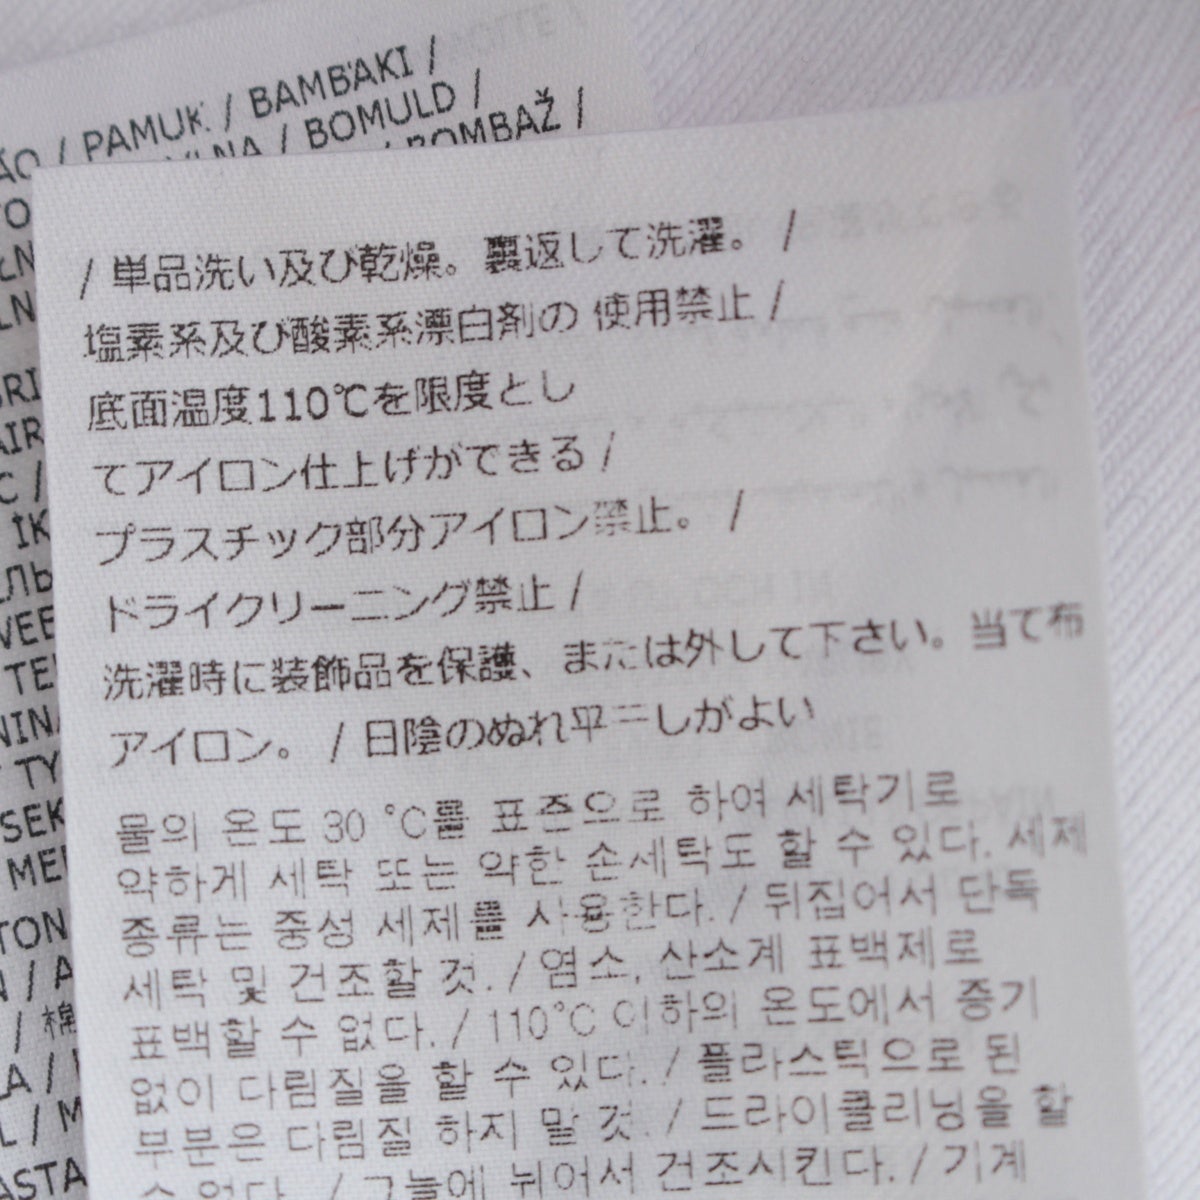 PAMUK / BAMBAKI /
/ BOMULD /
BOMBAŽ /
/ 単品洗い及び乾燥。裏返して洗濯。 /
塩素系及び酸素系漂白剤の 使用禁止 /
底面温度110℃を限度とし
てアイロン仕上げができる /
プラスチック部分アイロン禁止。 /
ドライクリーニング禁止 /
洗濯時に装飾品を保護、または外して下さい。当て布
アイロン。 / 日陰のぬれ平干しがよい
물의 온도 30 °C를 표준으로 하여 세탁기로
약하게 세탁 또는 약한 손세탁도 할 수 있다. 세제
종류는 중성 세제를 사용한다. / 뒤집어서 단독
세탁 및 건조할 것. / 염소, 산소계 표백제로
표백할 수 없다. / 110°C 이하의 온도에서 증기
없이 다림질을 할 수 있다. / 플라스틱으로 된
부분은 다림질 하지 말 것. / 드라이클리닝을 할
수 없다. / 그늘에 뉘어서 건조시킨다. / 기계